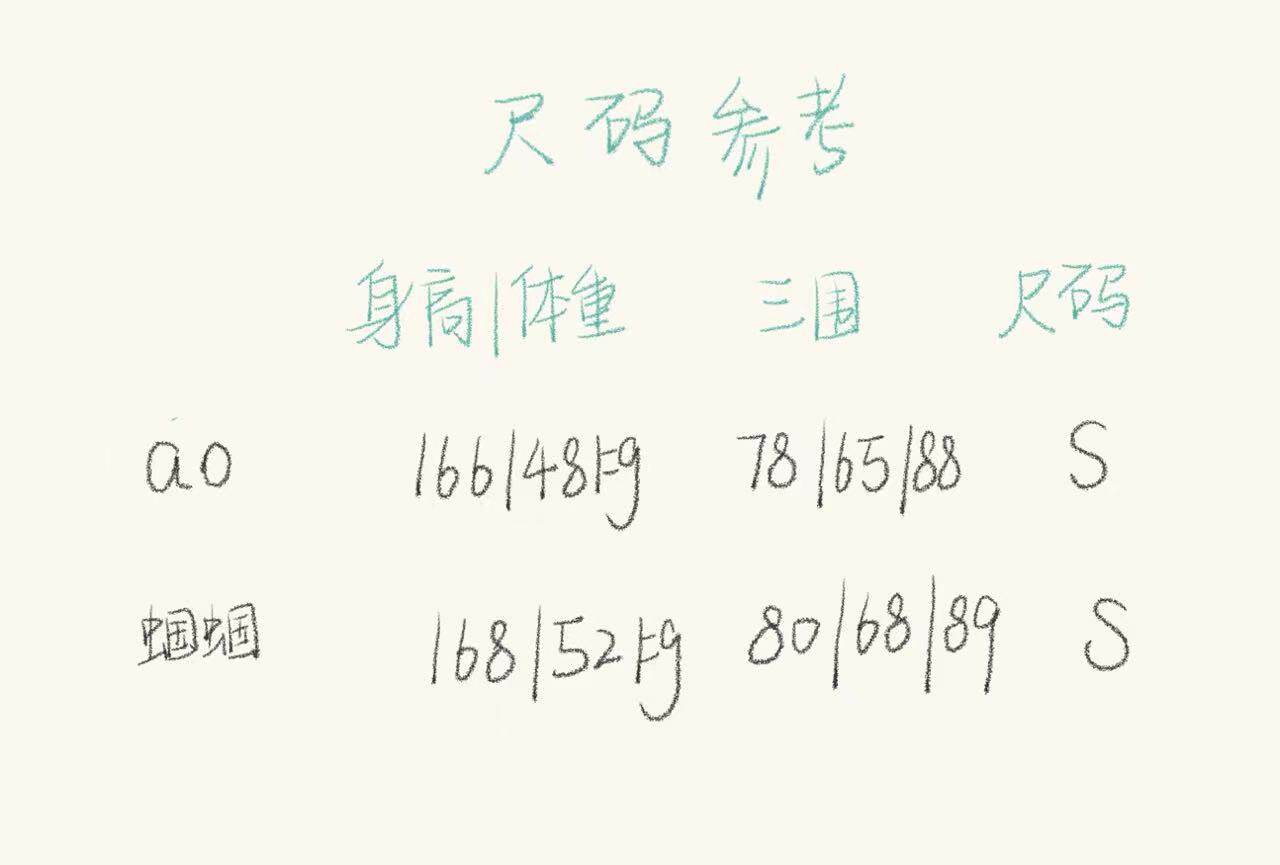 尺码参考
身高|体重 三围 尺码
ao 166|48kg 78|65|88 S
蝈蝈 168|52kg 80|68|89 S